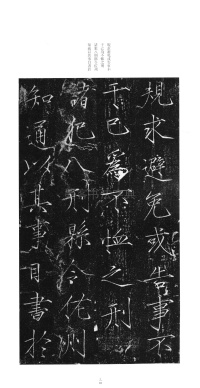 規求避免或告事不
干己爲不恤之刑
諸犯八刑縣令佐州
知通以其事目書於